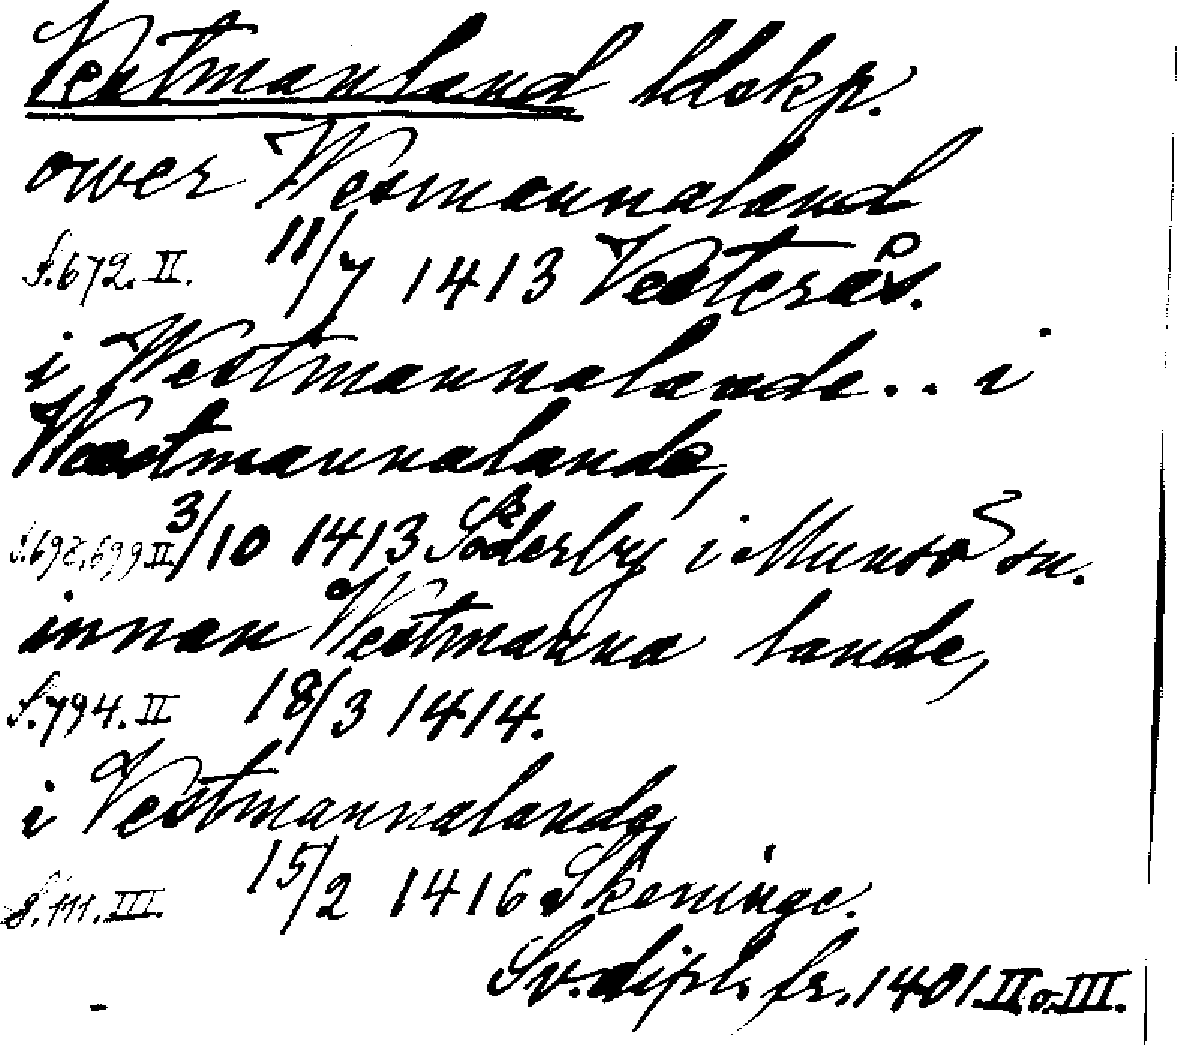 Vestmanland ldskp.
ower Wesmannaland
S. 672. II. 11/7 1413 Vesterås.
i Westmannalande .. i
Wæstmannalande,
S. 697, 699 II. 3/10 1413 Söderby i Munsö sn.
innan Westmanna lande,
S. 794. II 18/3 1414.
i Vestmannalande,
S. 111. III. 15/2 1416 Skeninge.
Sv. dipl. fr. 1401. II o. III.